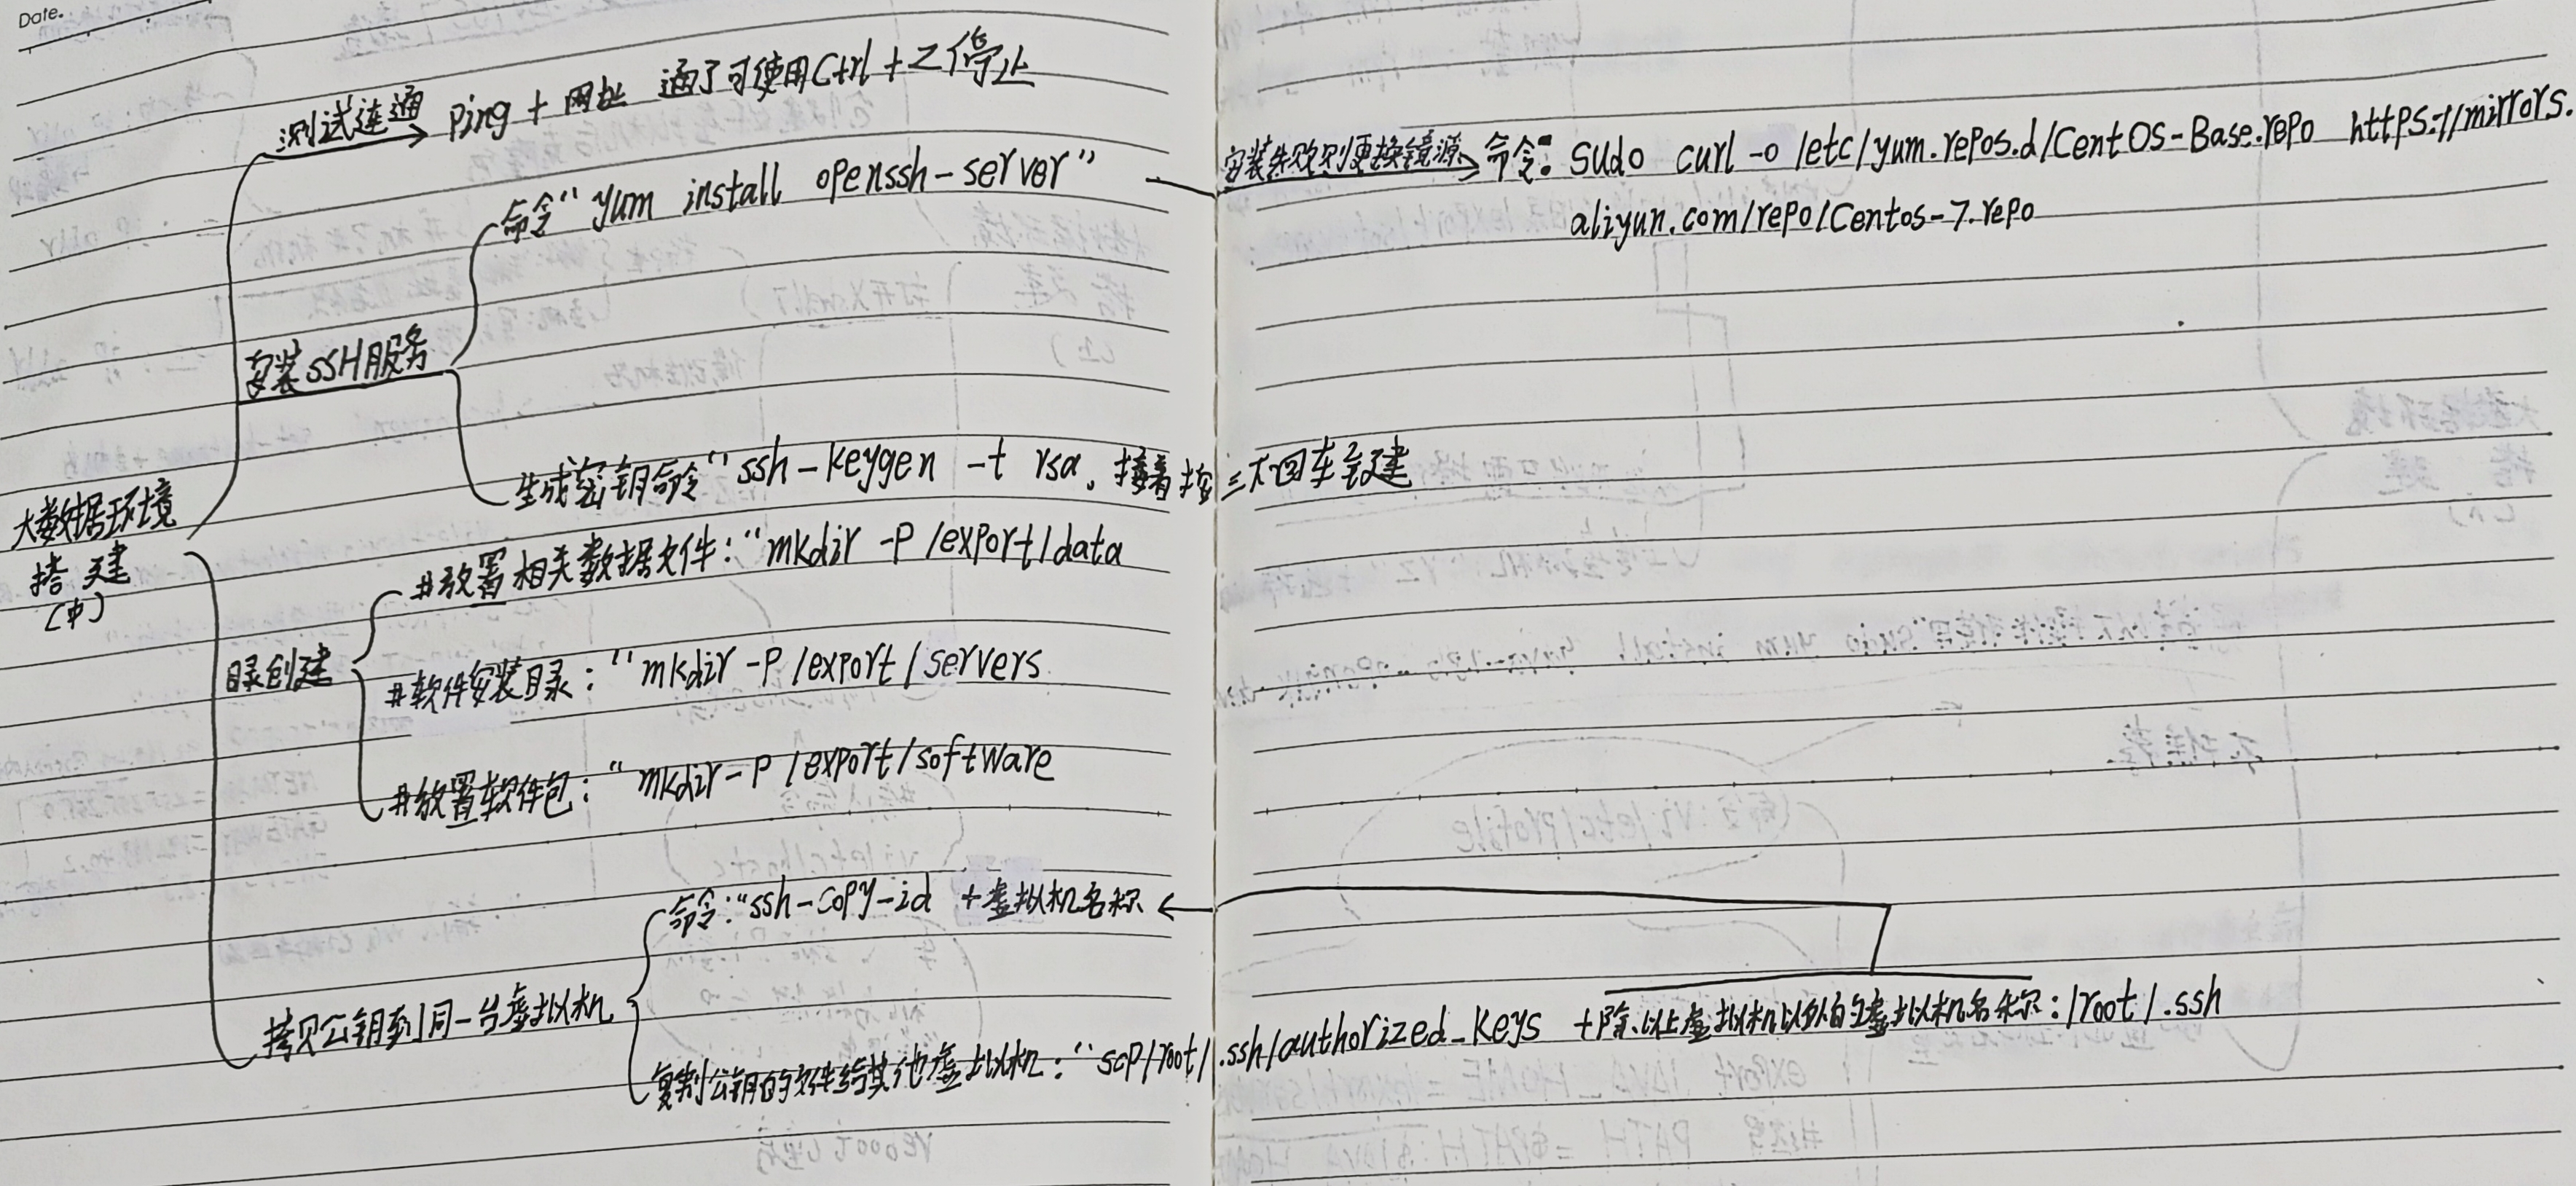 Date.
测试连通 Ping + 网址 通了可使用Ctrl + Z停止
命令“yum install openssh-server”
安装失败则更换镜源 命令: sudo curl -o /etc/yum.repos.d/CentOS-Base.repo https://mirrors.
aliyun.com/repo/Centos-7.repo
安装SSH服务
生成密钥命令“ssh-keygen -t rsa, 接着按三下回车创建
大数据环境
搭建
(中)
#放置相关数据文件:“mkdir -P /export/data
目录创建
#软件安装目录:“mkdir -P /export/servers
#放置软件包:“mkdir-P /export/software
命令:“ssh-copy-id +虚拟机名称
拷贝公钥到同一台虚拟机
复制公钥的文件给其他虚拟机:“scp/root/.ssh/authorized_keys +除以上虚拟机以外的虚拟机名称:/root/.ssh